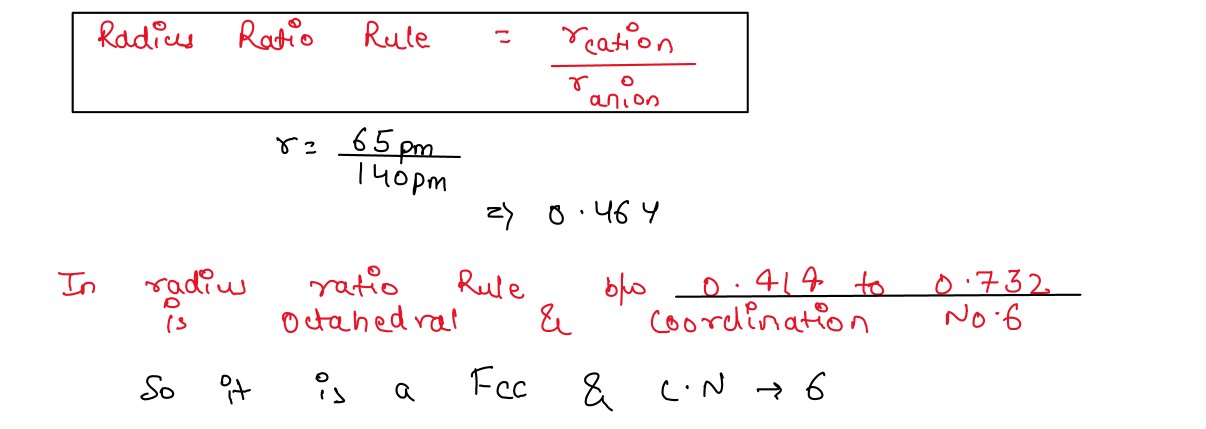 Radius Ratio Rule = rcation
ranion
r = 65 pm
140pm
=> 0.464
In radius ratio Rule b/o 0.414 to 0.732
is Octahedral & Coordination No.6
So it is a Fcc & C.N → 6